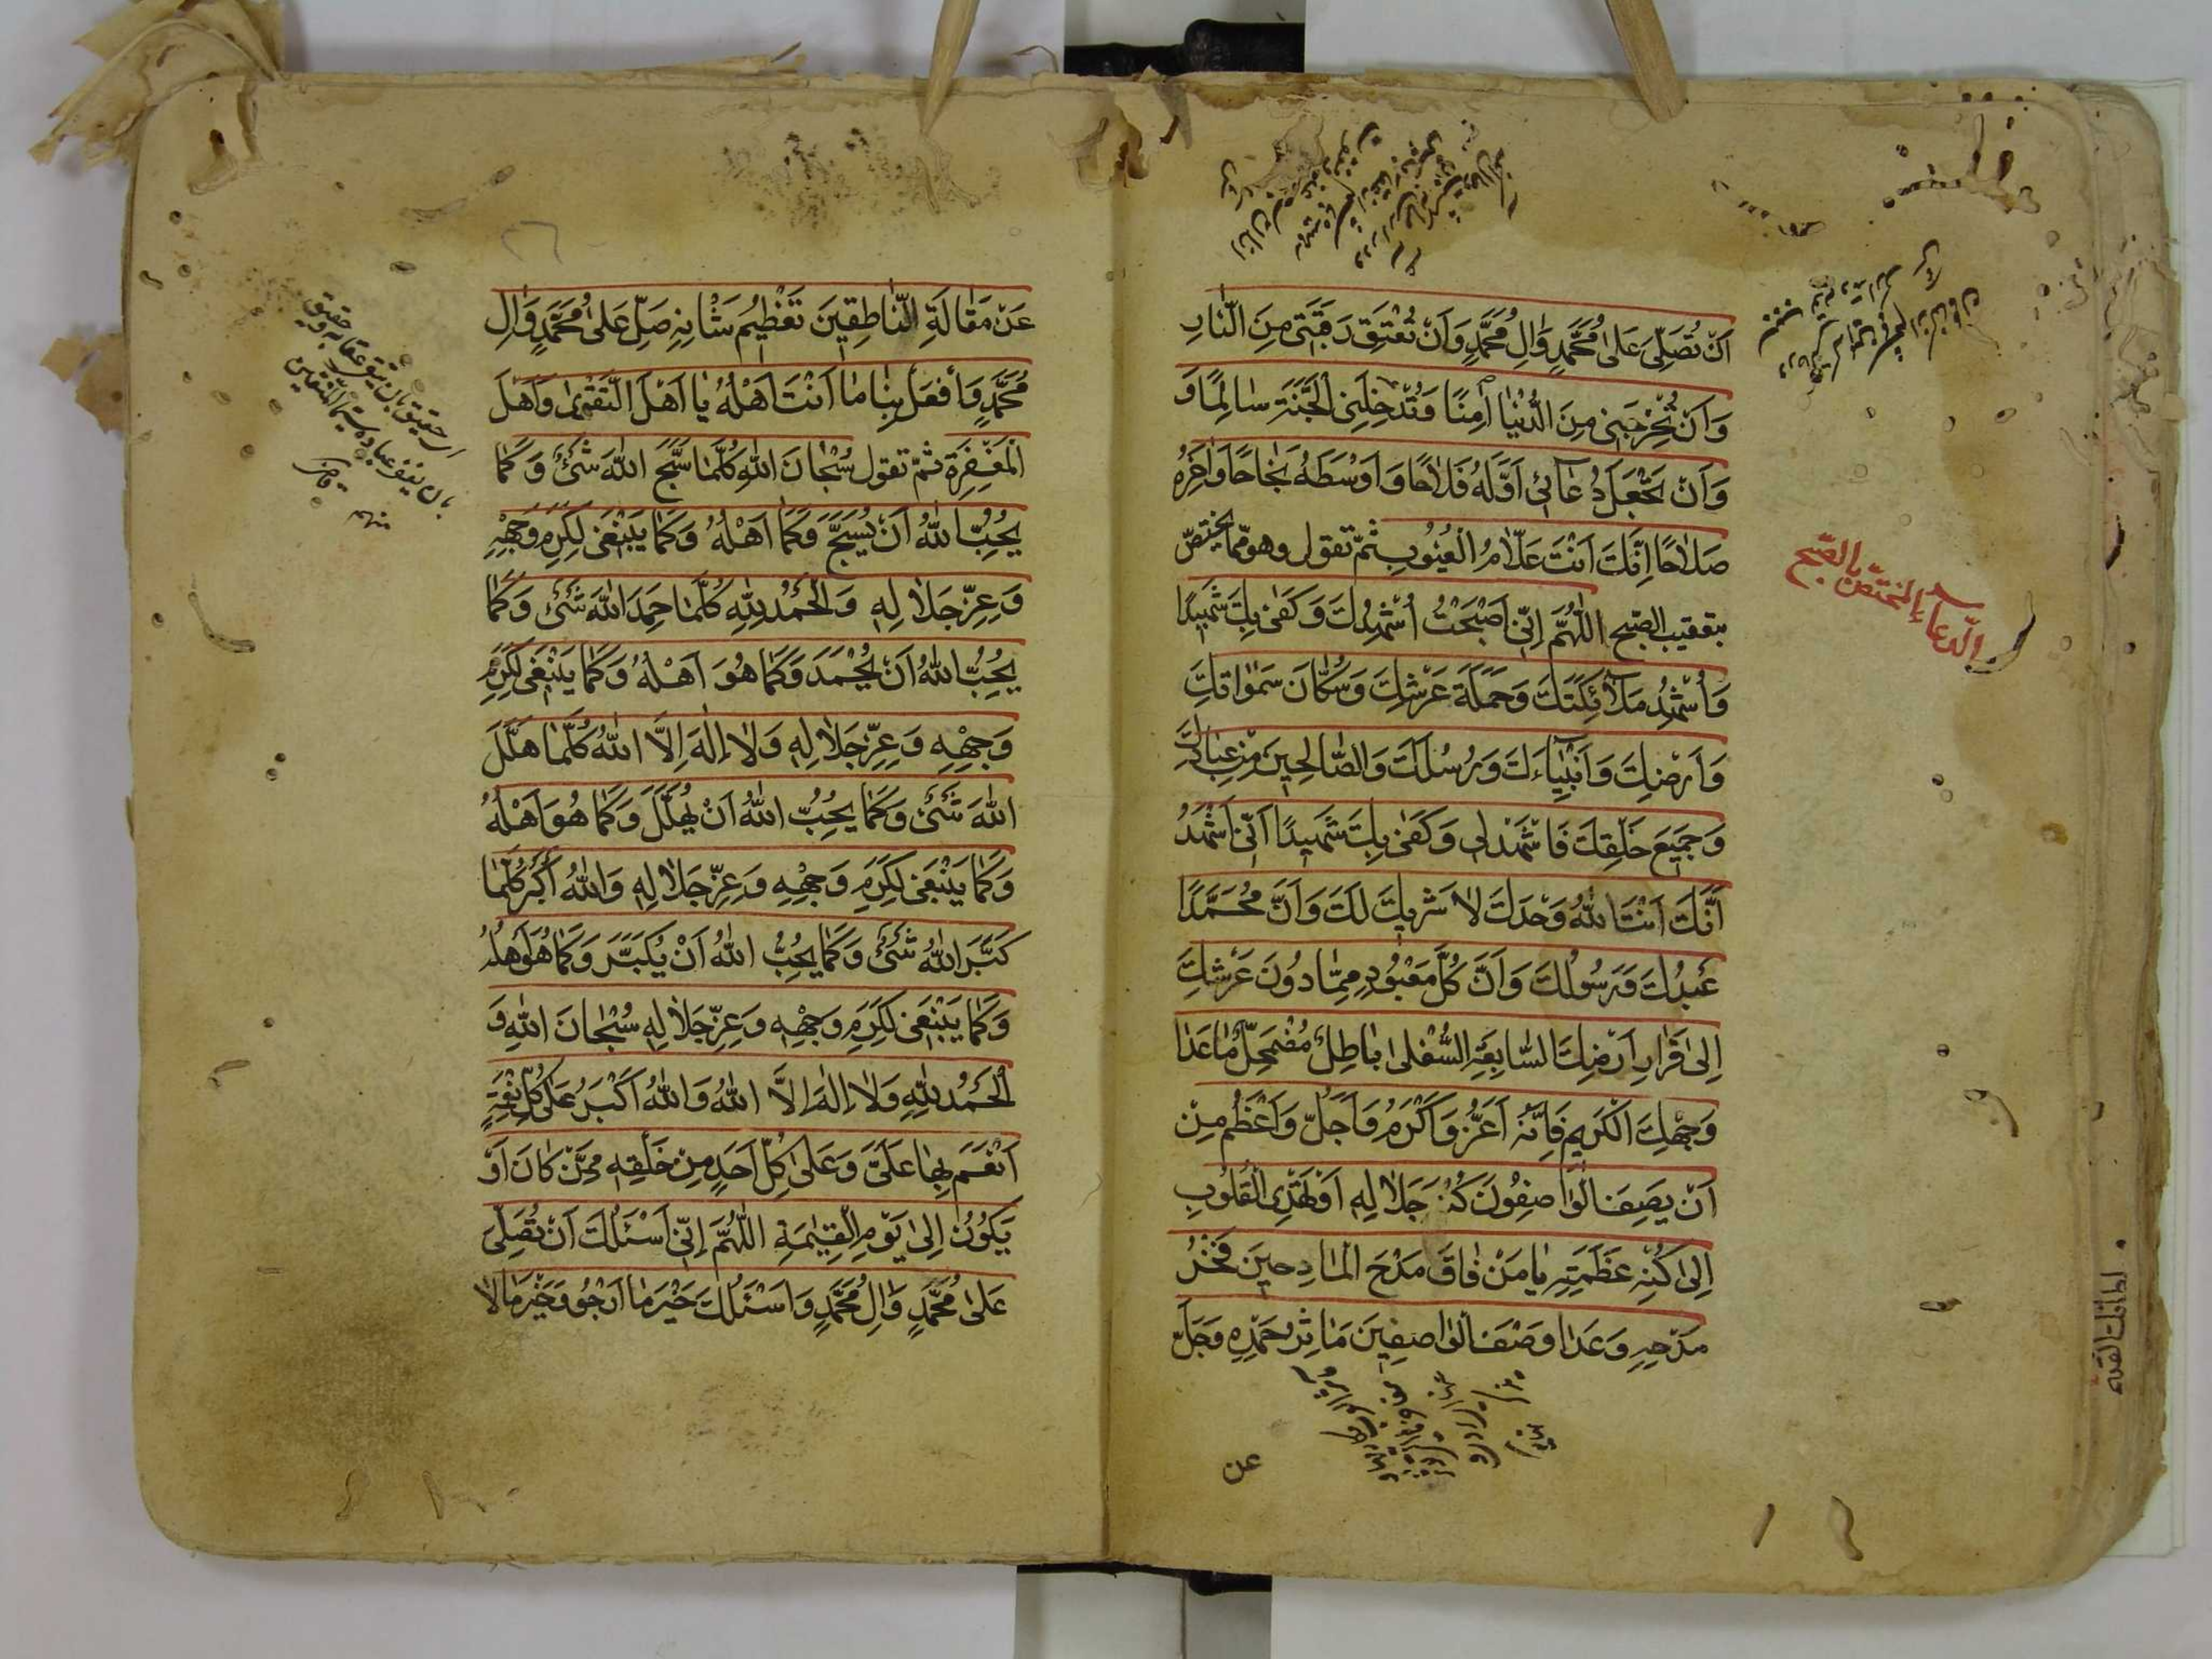 اَنْ تُصَلِّىَ عَلىٰ مُحَمَّدٍ وَاٰلِ مُحَمَّدٍ وَاَنْ تُعْتِقَ رَقَبَتى مِنَ النّارِ
وَاَنْ تُخْرِجَنى مِنَ الدُّنْيٰا اٰمِنًا وَتُدْخِلَنِى الْجَنَّةَ سٰالِمًا وَ
وَاَنْ تَجْعَلَ دُعٰائى اَوَّلَهُ فَلاٰحًا وَاَوْسَطَهُ نَجٰاحًا وَاٰخِرَهُ
صَلاٰحًا اِنَّكَ اَنْتَ عَلاّٰمُ الْغُيُوبِ ثمّ تقول وهو ممّا يختصّ
بتعقيب الصّبح اَللّٰهُمَّ اِنّى اَصْبَحْتُ اُشْهِدُكَ وَكَفىٰ بِكَ شَهيدًا
وَاُشْهِدُ مَلاٰئِكَتَكَ وَحَمَلَةَ عَرْشِكَ وَسُكّٰانَ سَمٰوٰاتِكَ
وَاَرْضِكَ وَاَنْبِيٰاءَكَ وَرُسُلَكَ وَالصّٰالِحِينَ مِنْ عِبٰادِكَ
وَجَمِيعَ خَلْقِكَ فَاشْهَدْ لى وَكَفىٰ بِكَ شَهيدًا اَنّى اَشْهَدُ
اَنَّكَ اَنْتَ اللهُ وَحْدَكَ لاٰ شَرِيكَ لَكَ وَاَنَّ مُحَمَّدًا
عَبْدُكَ وَرَسُولُكَ وَاَنَّ كُلَّ مَعْبُودٍ مِمّٰا دُونَ عَرْشِكَ
اِلىٰ قَرٰارِ اَرْضِكَ السّٰابِعَةِ السُّفْلىٰ بٰاطِلٌ مُضْمَحِلٌّ مٰا عَدٰا
وَجْهِكَ الْكَرِيمِ فَاِنَّهُ اَعَزُّ وَاَكْرَمُ وَاَجَلُّ وَاَعْظَمُ مِنْ
اَنْ يَصِفَ الْوٰاصِفُونَ كُنْهَ جَلاٰلِهِ اَوْ تَهْتَدِىَ الْقُلُوبُ
اِلىٰ كُنْهِ عَظَمَتِهِ يٰا مَنْ فٰاقَ مَدْحَ الْمٰادِحينَ فَخْرُ
مَدْحِهِ وَعَدٰا وَصْفَ الْوٰاصِفينَ مَاٰثِرُ حَمْدِهِ وَجَلَّ
عن
الدّعاء المختصّ بالصّبح
عَنْ مَقٰالَةِ النّٰاطِقِينَ تَعْظِيمُ شَاْنِهِ صَلِّ عَلىٰ مُحَمَّدٍ وَاٰلِ
مُحَمَّدٍ وَافْعَلْ بِنٰا مٰا اَنْتَ اَهْلُهُ يٰا اَهْلَ التَّقْوىٰ وَاَهْلَ
الْمَغْفِرَةِ ثمّ تقول سُبْحٰانَ اللهِ كُلَّمٰا سَبَّحَ اللهَ شَىْءٌ وَكَمٰا
يُحِبُّ اللهُ اَنْ يُسَبَّحَ وَكَمٰا اَهْلُهُ وَكَمٰا يَنْبَغى لِكَرَمِ وَجْهِهِ
وَعِزِّ جَلاٰلِهِ وَالْحَمْدُ لِلّٰهِ كُلَّمٰا حَمِدَ اللهَ شَىْءٌ وَكَمٰا
يُحِبُّ اللهُ اَنْ يُحْمَدَ وَكَمٰا هُوَ اَهْلُهُ وَكَمٰا يَنْبَغى لِكَرَمِ
وَجْهِهِ وَعِزِّ جَلاٰلِهِ وَلاٰ اِلٰهَ اِلاَّ اللهُ كُلَّمٰا هَلَّلَ
اللهَ شَىْءٌ وَكَمٰا يُحِبُّ اللهُ اَنْ يُهَلَّلَ وَكَمٰا هُوَ اَهْلُهُ
وَكَمٰا يَنْبَغى لِكَرَمِ وَجْهِهِ وَعِزِّ جَلاٰلِهِ وَاللهُ اَكْبَرُ كُلَّمٰا
كَبَّرَ اللهَ شَىْءٌ وَكَمٰا يُحِبُّ اللهُ اَنْ يُكَبَّرَ وَكَمٰا هُوَ اَهْلُهُ
وَكَمٰا يَنْبَغى لِكَرَمِ وَجْهِهِ وَعِزِّ جَلاٰلِهِ سُبْحٰانَ اللهِ وَ
الْحَمْدُ لِلّٰهِ وَلاٰ اِلٰهَ اِلاَّ اللهُ وَاللهُ اَكْبَرُ عَلىٰ كُلِّ نِعْمَةٍ
اَنْعَمَ بِهٰا عَلَىَّ وَعَلىٰ كُلِّ اَحَدٍ مِنْ خَلْقِهِ مِمَّنْ كٰانَ اَوْ
يَكُونُ اِلىٰ يَوْمِ الْقِيٰمَةِ اَللّٰهُمَّ اِنّى اَسْئَلُكَ اَنْ تُصَلِّىَ
عَلىٰ مُحَمَّدٍ وَاٰلِ مُحَمَّدٍ وَاَسْئَلُكَ خَيْرَ مٰا اَرْجُو وَخَيْرَ مٰا لاٰ